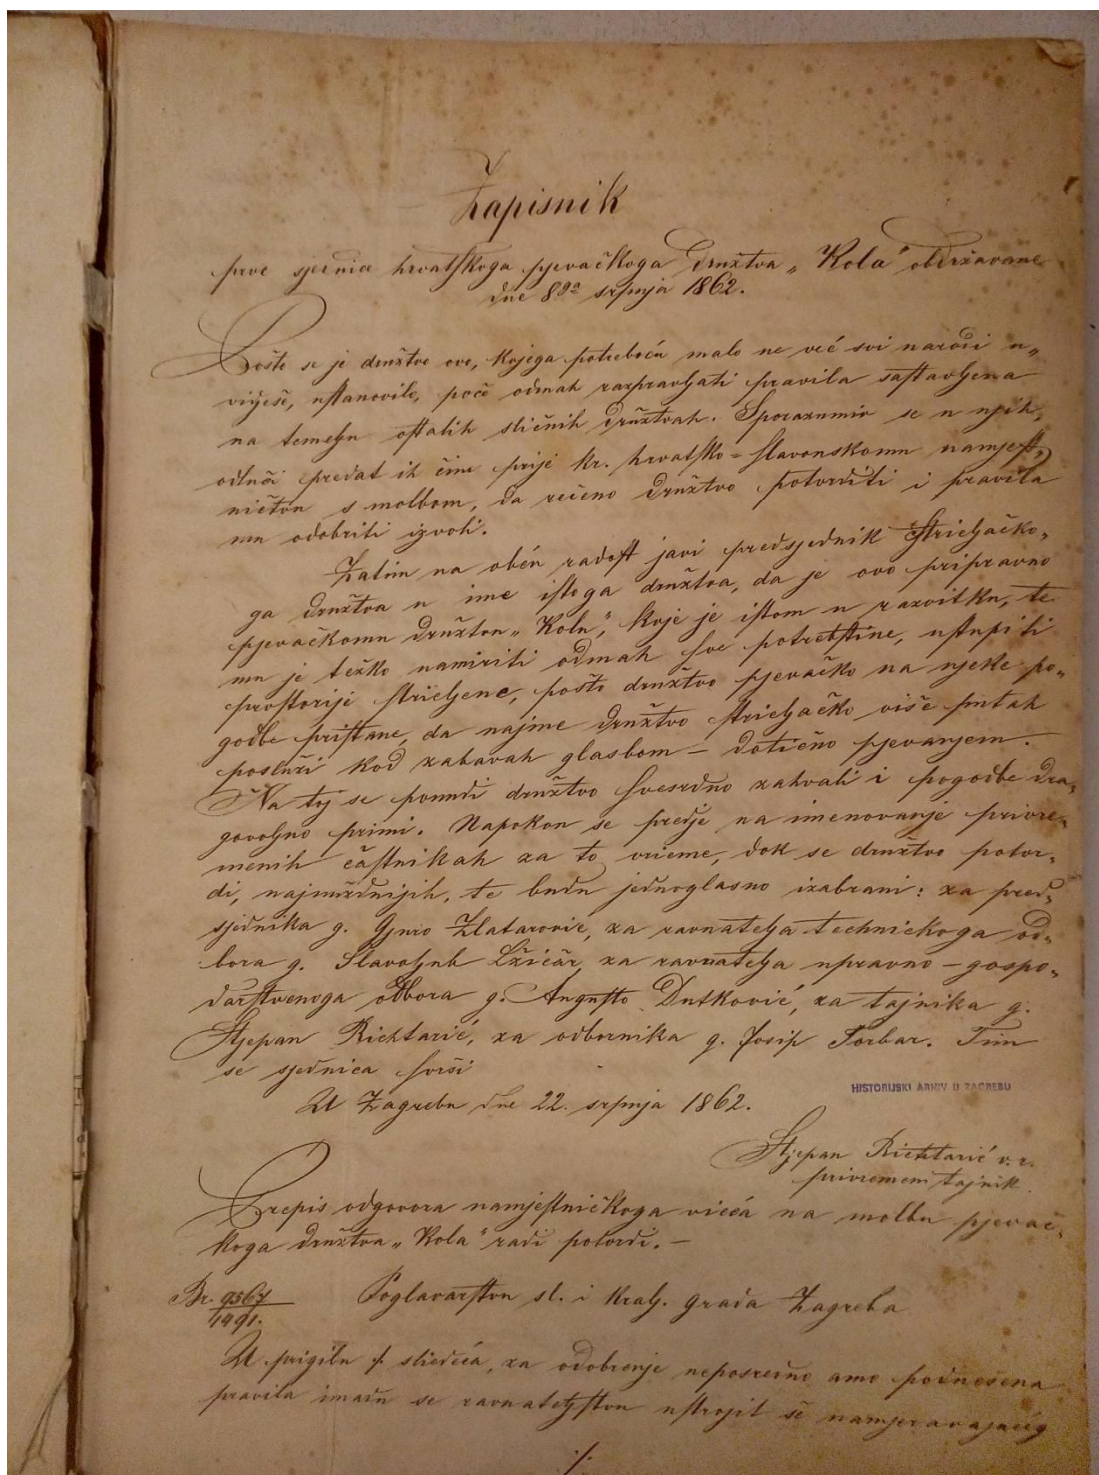 Zapisnik
prve sjednice hrvatskoga pjevačkoga družtva „Kola" obdržavane
dne 8ga srpnja 1862.
Pošto se je družtvo ovo, kojega potreboću malo ne već svi narodi u„
vidješe, ustanovilo, poče odmah razpravljati pravila sastavljena
na temelju ostalih sličnih družtvah. Sporazumiv se u njih,
odluči predat ih čim prije kr. hrvatsko-slavonskomu namjest„
ničtvu s molbom, da rečeno družtvo potvrditi i pravila
mu odobriti izvoli.
Zatim na obću radost javi predsjednik strieljačko„
ga družtva u ime istoga družtva, da je ovo pripravno
pjevačkomu družtvu „Kolu", koje je istom u razvitku, te
mu je težko namiriti odmah sve potrebštine, ustupiti
prostorije streljene, pošto družtvo pjevačko na njeke po„
godbe pristane, da najme družtvo strieljačko više putah
posluži kod zabavah glasbom – dotično pjevanjem.
Na toj se ponudi družtvo svesrdno zahvali i pogodbe dra„
govoljno primi. Napokon se predje na imenovanje privre„
menih častnikah za to vrieme, dok se družtvo potvr„
di, najnuždnijih, te budu jednoglasno izabrani: za pred„
sjednika g. Gjuro Zlatarović, za ravnatelja techničkoga od„
bora g. Slavoljub Lžičar, za ravnatelja upravno-gospo„
darstvenoga odbora g. Augusto Dutković, za tajnika g.
Stjepan Richtarić, za odbornika g. Josip Torbar. Tim
se sjednica svrši
U Zagrebu dne 22. srpnja 1862.
HISTORIJSKI ARHIV U ZAGREBU
Stjepan Richtarić v. r.
privremeni tajnik.
Prepis odgovora namjestničkoga vieća na molbu pjevač„
koga družtva „Kola" radi potvrdi. –
Br. 9567
1491.
Poglavarstvu sl. i kralj. grada Zagreba
U prigibu ./. sliedeća, za odobrenje neposredno amo podnesena
pravila imadu se ravnateljstvu ustrojit se namjeravajućeg
./.